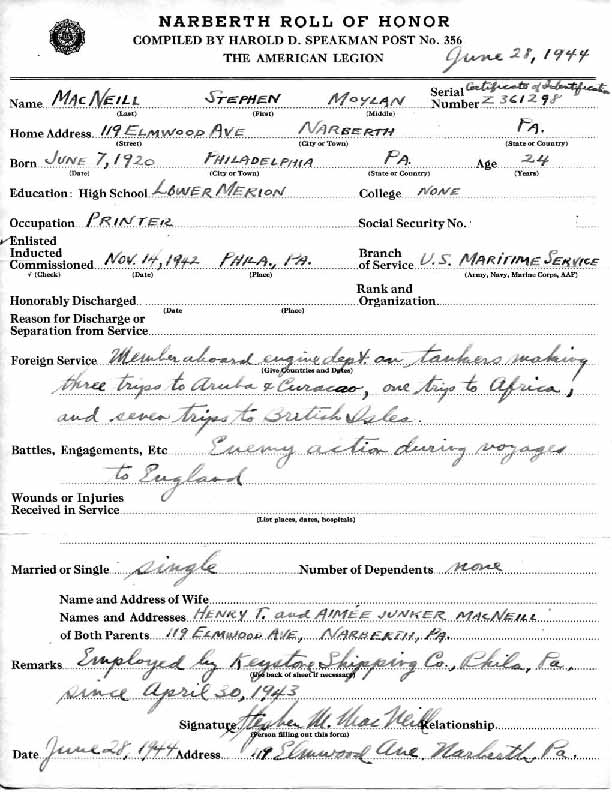 NARBERTH ROLL OF HONOR
COMPILED BY HAROLD D. SPEAKMAN POST No. 356
THE AMERICAN LEGION
June 28, 1944
Name MACNEILL STEPHEN MOYLAN Serial Number Certificate of Identification Z 361298
(Last) (First) (Middle)
Home Address 119 ELMWOOD AVE NARBERTH PA.
(Street) (City or Town) (State or Country)
Born JUNE 7, 1920 PHILADELPHIA PA. Age 24
(Date) (City or Town) (State or Country) (Years)
Education: High School LOWER MERION College NONE
Occupation PRINTER Social Security No.
✓Enlisted
Inducted Branch
Commissioned NOV. 14, 1942 PHILA., PA. of Service U.S. MARITIME SERVICE
√ (Check) (Date) (Place) (Army, Navy, Marine Corps, AAF)
Rank and
Honorably Discharged Organization
(Date (Place)
Reason for Discharge or
Separation from Service
Foreign Service Member aboard engine dept. on tankers making
(Give Countries and Dates)
three trips to Aruba & Curacao, one trip to Africa,
and seven trips to British Isles.
Battles, Engagements, Etc Enemy action during voyages
to England
Wounds or Injuries
Received in Service
(List places, dates, hospitals)
Married or Single single Number of Dependents none
Name and Address of Wife
Names and Addresses HENRY T. and AIMÉE JUNKER MACNEILL
of Both Parents 119 ELMWOOD AVE, NARBERTH, PA.
Remarks Employed by Keystone Shipping Co., Phila, Pa.,
(Use back of sheet if necessary)
since April 30, 1943
Signature Stephen M. MacNeill Relationship
(Person filling out this form)
Date June 28, 1944 Address 119 Elmwood Ave. Narberth, Pa.